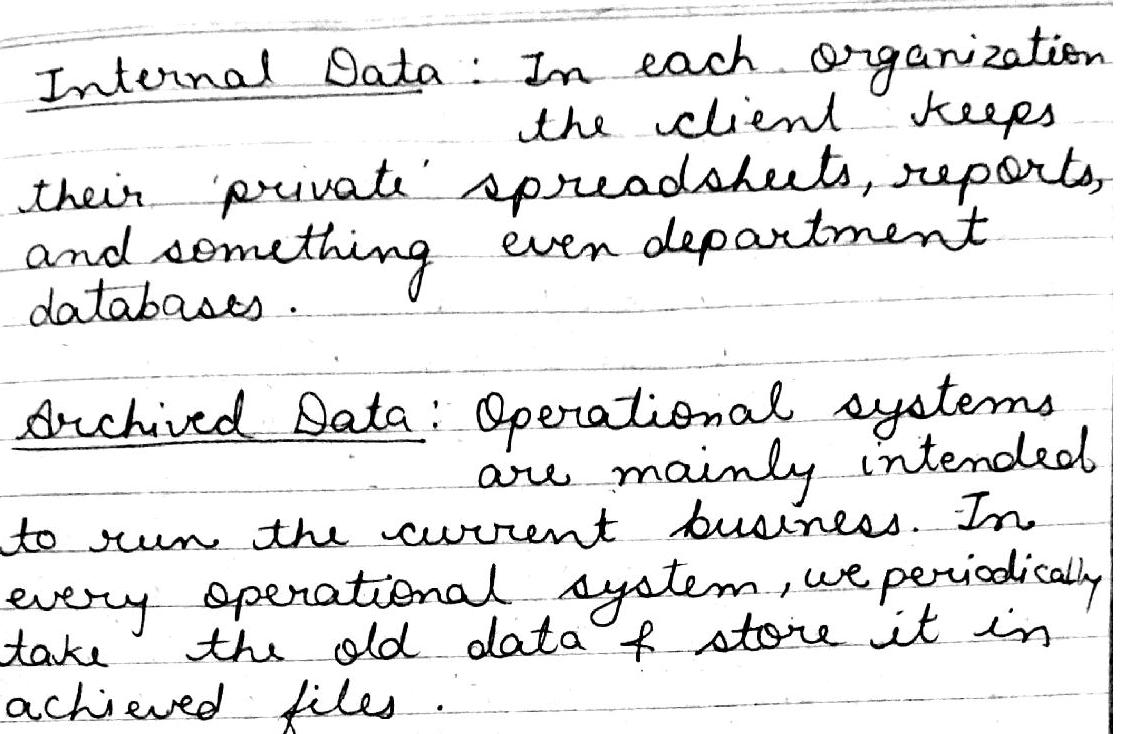 Internal Data : In each organization
the client keeps
their 'private' spreadsheets, reports,
and something even department
databases.
Archived Data : Operational systems
are mainly intended
to run the current business. In
every operational system, we periodically
take the old data & store it in
achieved files.